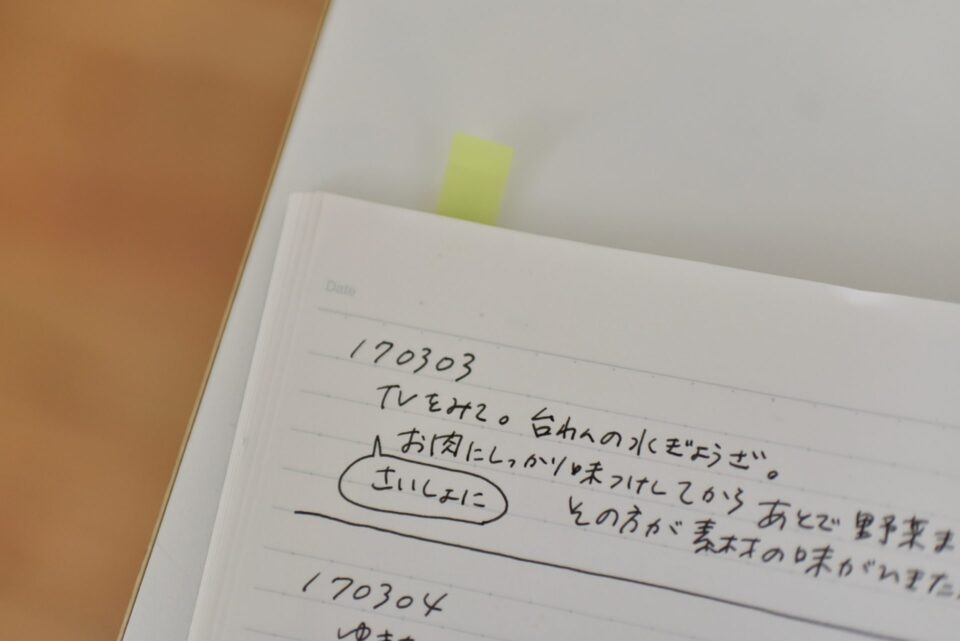 Date
170303
TVをみて。台わんの水ぎょうざ。
お肉にしっかり味つけしてから あとで野菜ま
さいしょに
その方が素材の味がいきた
170304
ゆ